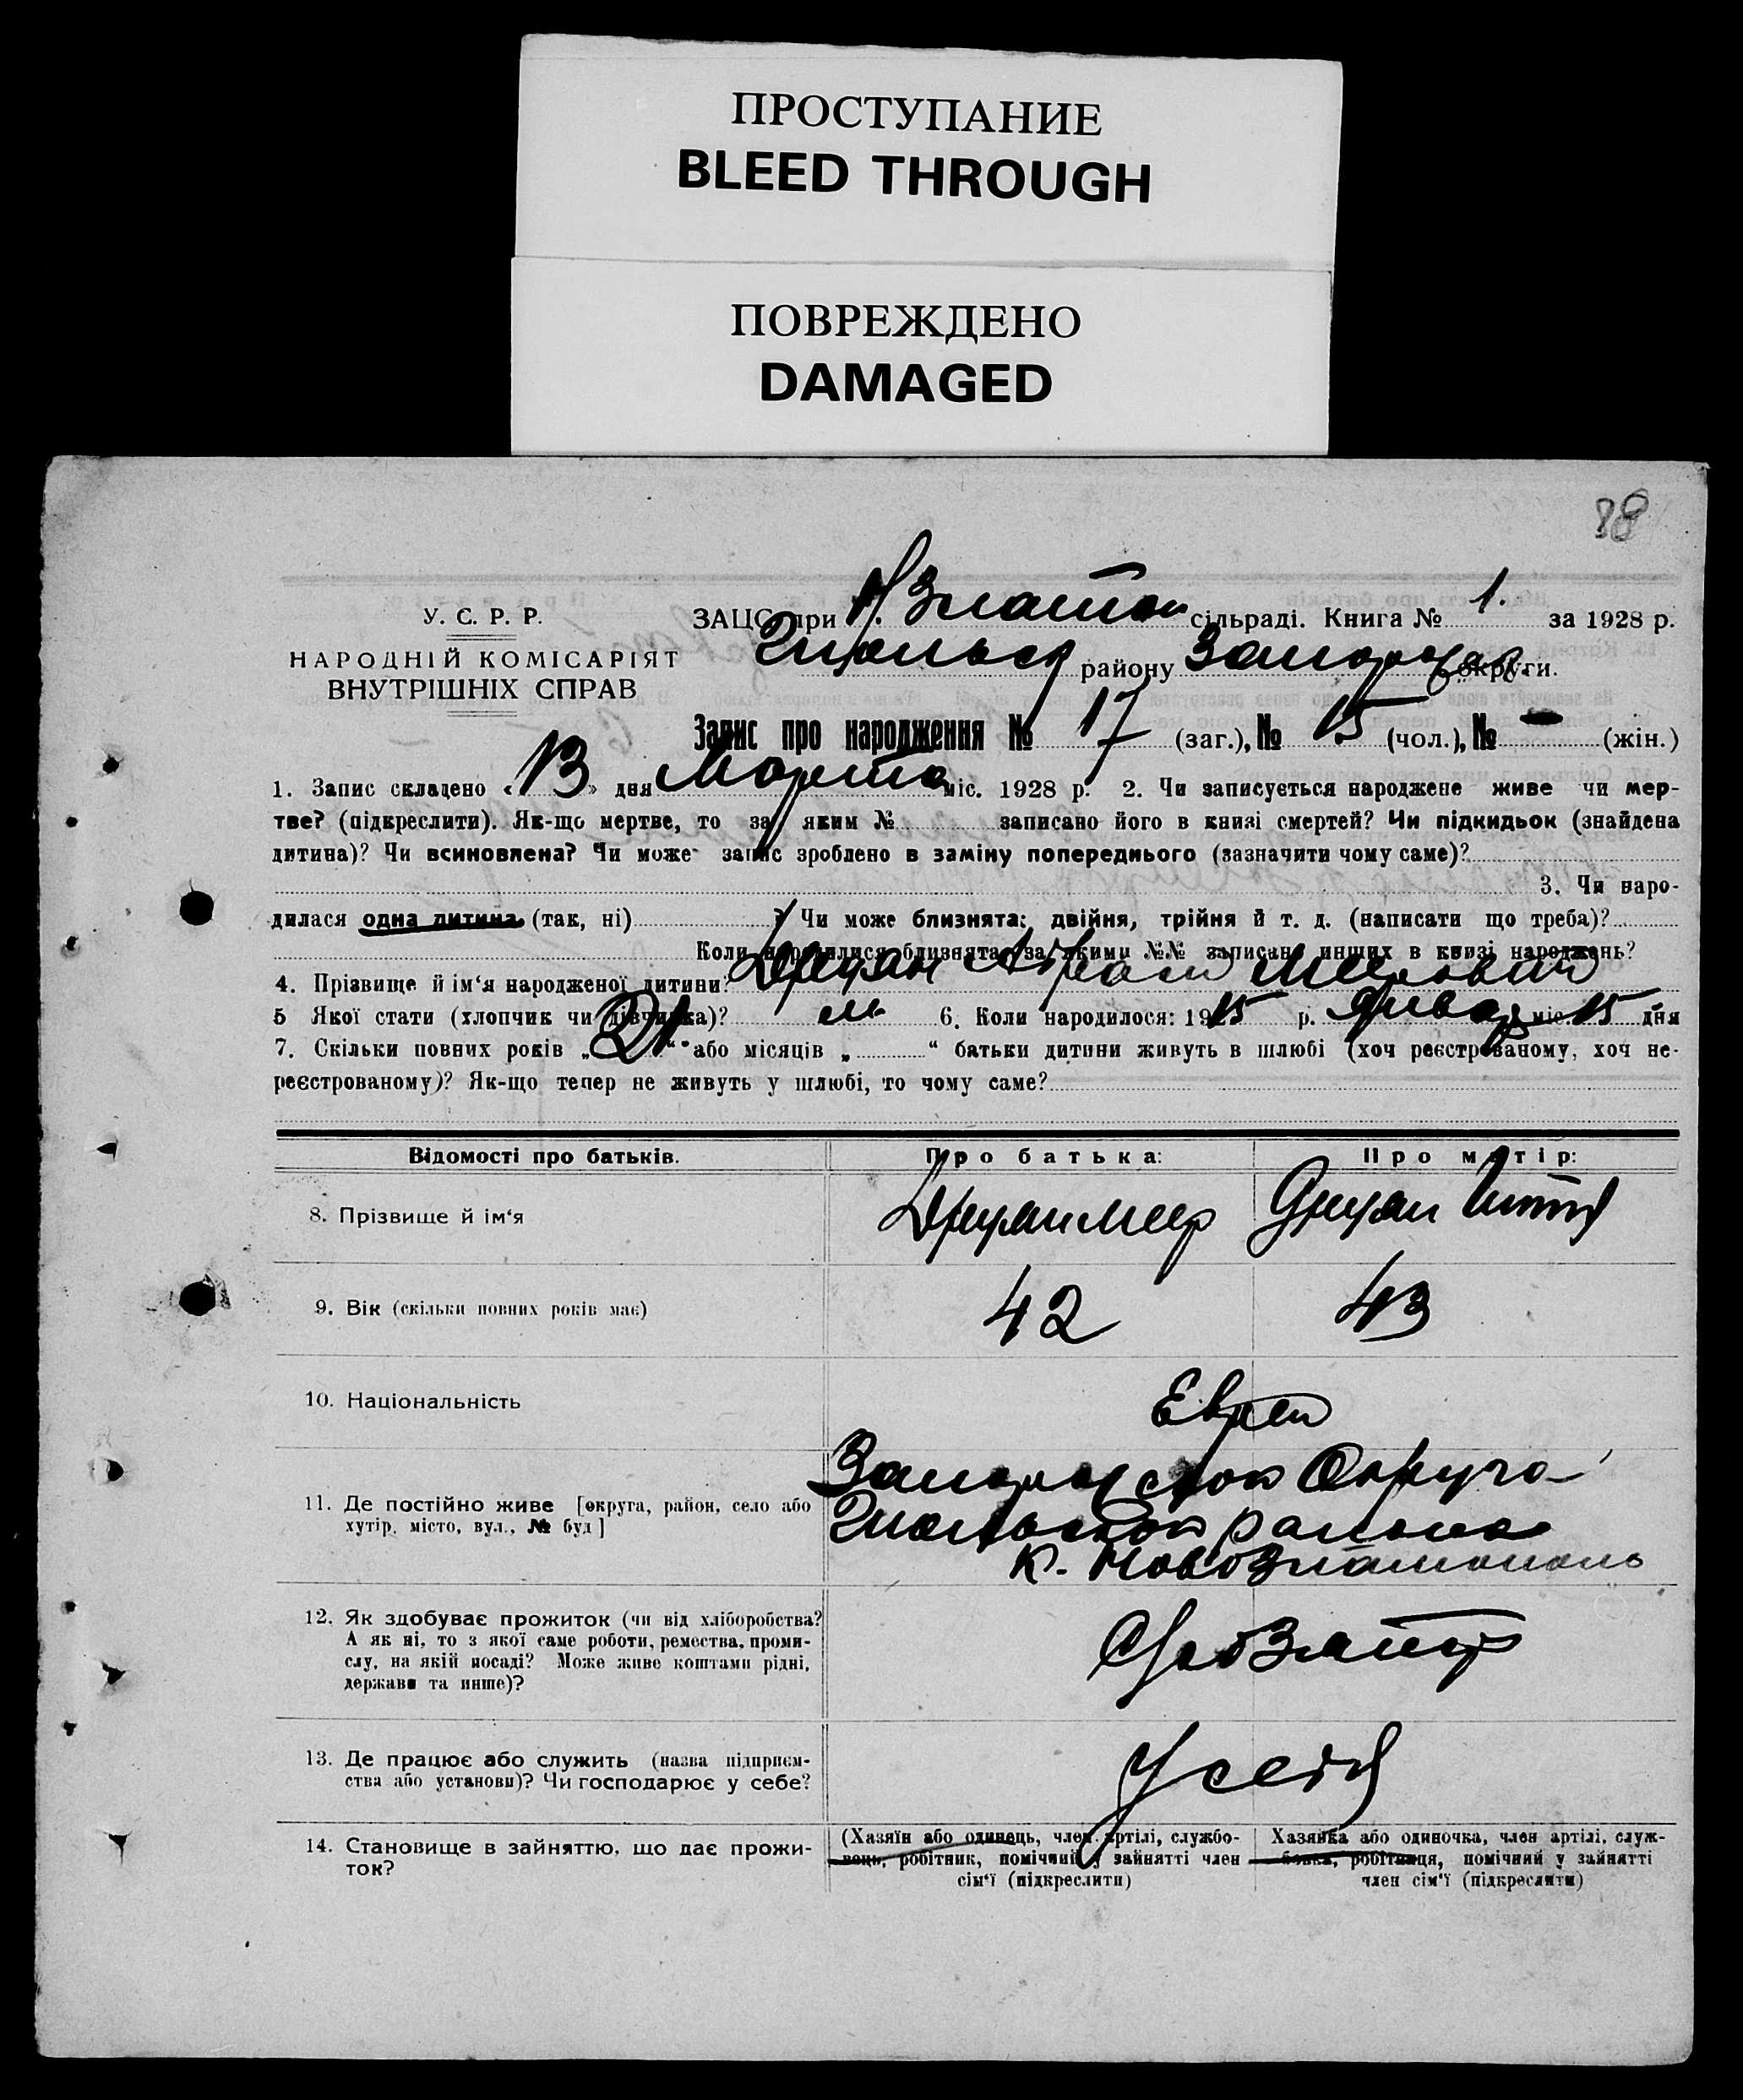 ПРОСТУПАНИЕ
BLEED THROUGH
ПОВРЕЖДЕНО
DAMAGED
У. С. Р. Р.
НАРОДНІЙ КОМІСАРІЯТ
ВНУТРІШНІХ СПРАВ
ЗАЦС при сільраді. Книга № 1. за 1928 р.
району округи.
Запис про народження № 17 (заг.), № 15 (чол.), № — (жін.)
1. Запис складено «13» дня Марта міс. 1928 р. 2. Чи записується народжене живе чи мер-
тве? (підкреслити). Як-що мертве, то за яким № записано його в книзі смертей? Чи підкидьок (знайдена
дитина)? Чи всиновлена? Чи може запис зроблено в заміну попереднього (зазначити чому саме)?
3. Чи наро-
дилася одна дитина (так, ні) ? Чи може близнята: двійня, трійня й т. д. (написати що треба)?
Коли народилися близнята, за якими №№ записані инших в книзі народжень?
4. Прізвище й ім‘я народженої дитини? Абрам Меерович
5 Якої стати (хлопчик чи дівчинка)? м. 6. Коли народилося: 1915 р. Январ міс. 15 дня
7. Скільки повних років „21“ або місяців „ “ батьки дитини живуть в шлюбі (хоч реєстрованому, хоч не-
реєстрованому)? Як-що тепер не живуть у шлюбі, то чому саме?
Відомості про батьків. Про батька: Про матір:
8. Прізвище й ім‘я Меер
9. Вік (скільки повних років має) 42 43
10. Національність Евреи
11. Де постійно живе [округа, район, село або
хутір, місто, вул., № буд]
Округа
района
к. Новозлатополь
12. Як здобуває прожиток (чи від хліборобства?
А як ні, то з якої саме роботи, ремества, проми-
слу, на якій посаді? Може живе коштами рідні,
держави та инше)?
13. Де працює або служить (назва підприєм-
ства або установи)? Чи господарює у себе?
У себя
14. Становище в зайняттю, що дає прожи-
ток?
(Хазяїн або одинець, член артілі, службо-
вець, робітник, помічний у зайнятті член
сім‘ї (підкреслити)
Хазяйка або одиночка, член артілі, служ-
бовка, робітниця, помічний у зайнятті
член сім‘ї (підкреслити)